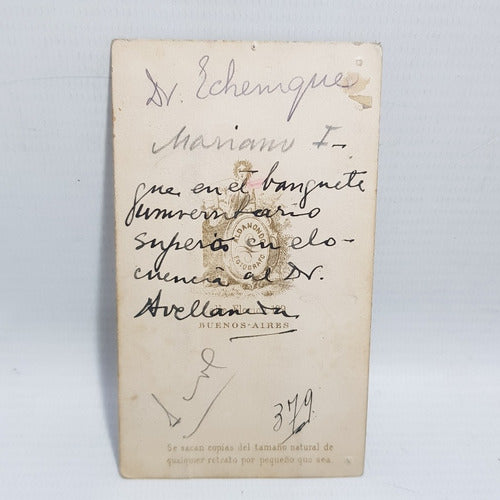 Dr. Echenique
Mariano I-
que en el banquete
universitario
superó en elo-
cuencia al Dr.
Avellaneda
ALDANONDO
FOTOGRAFO
BUENOS-AIRES
379
Se sacan copias del tamaño natural de
cualquier retrato por pequeño que sea.